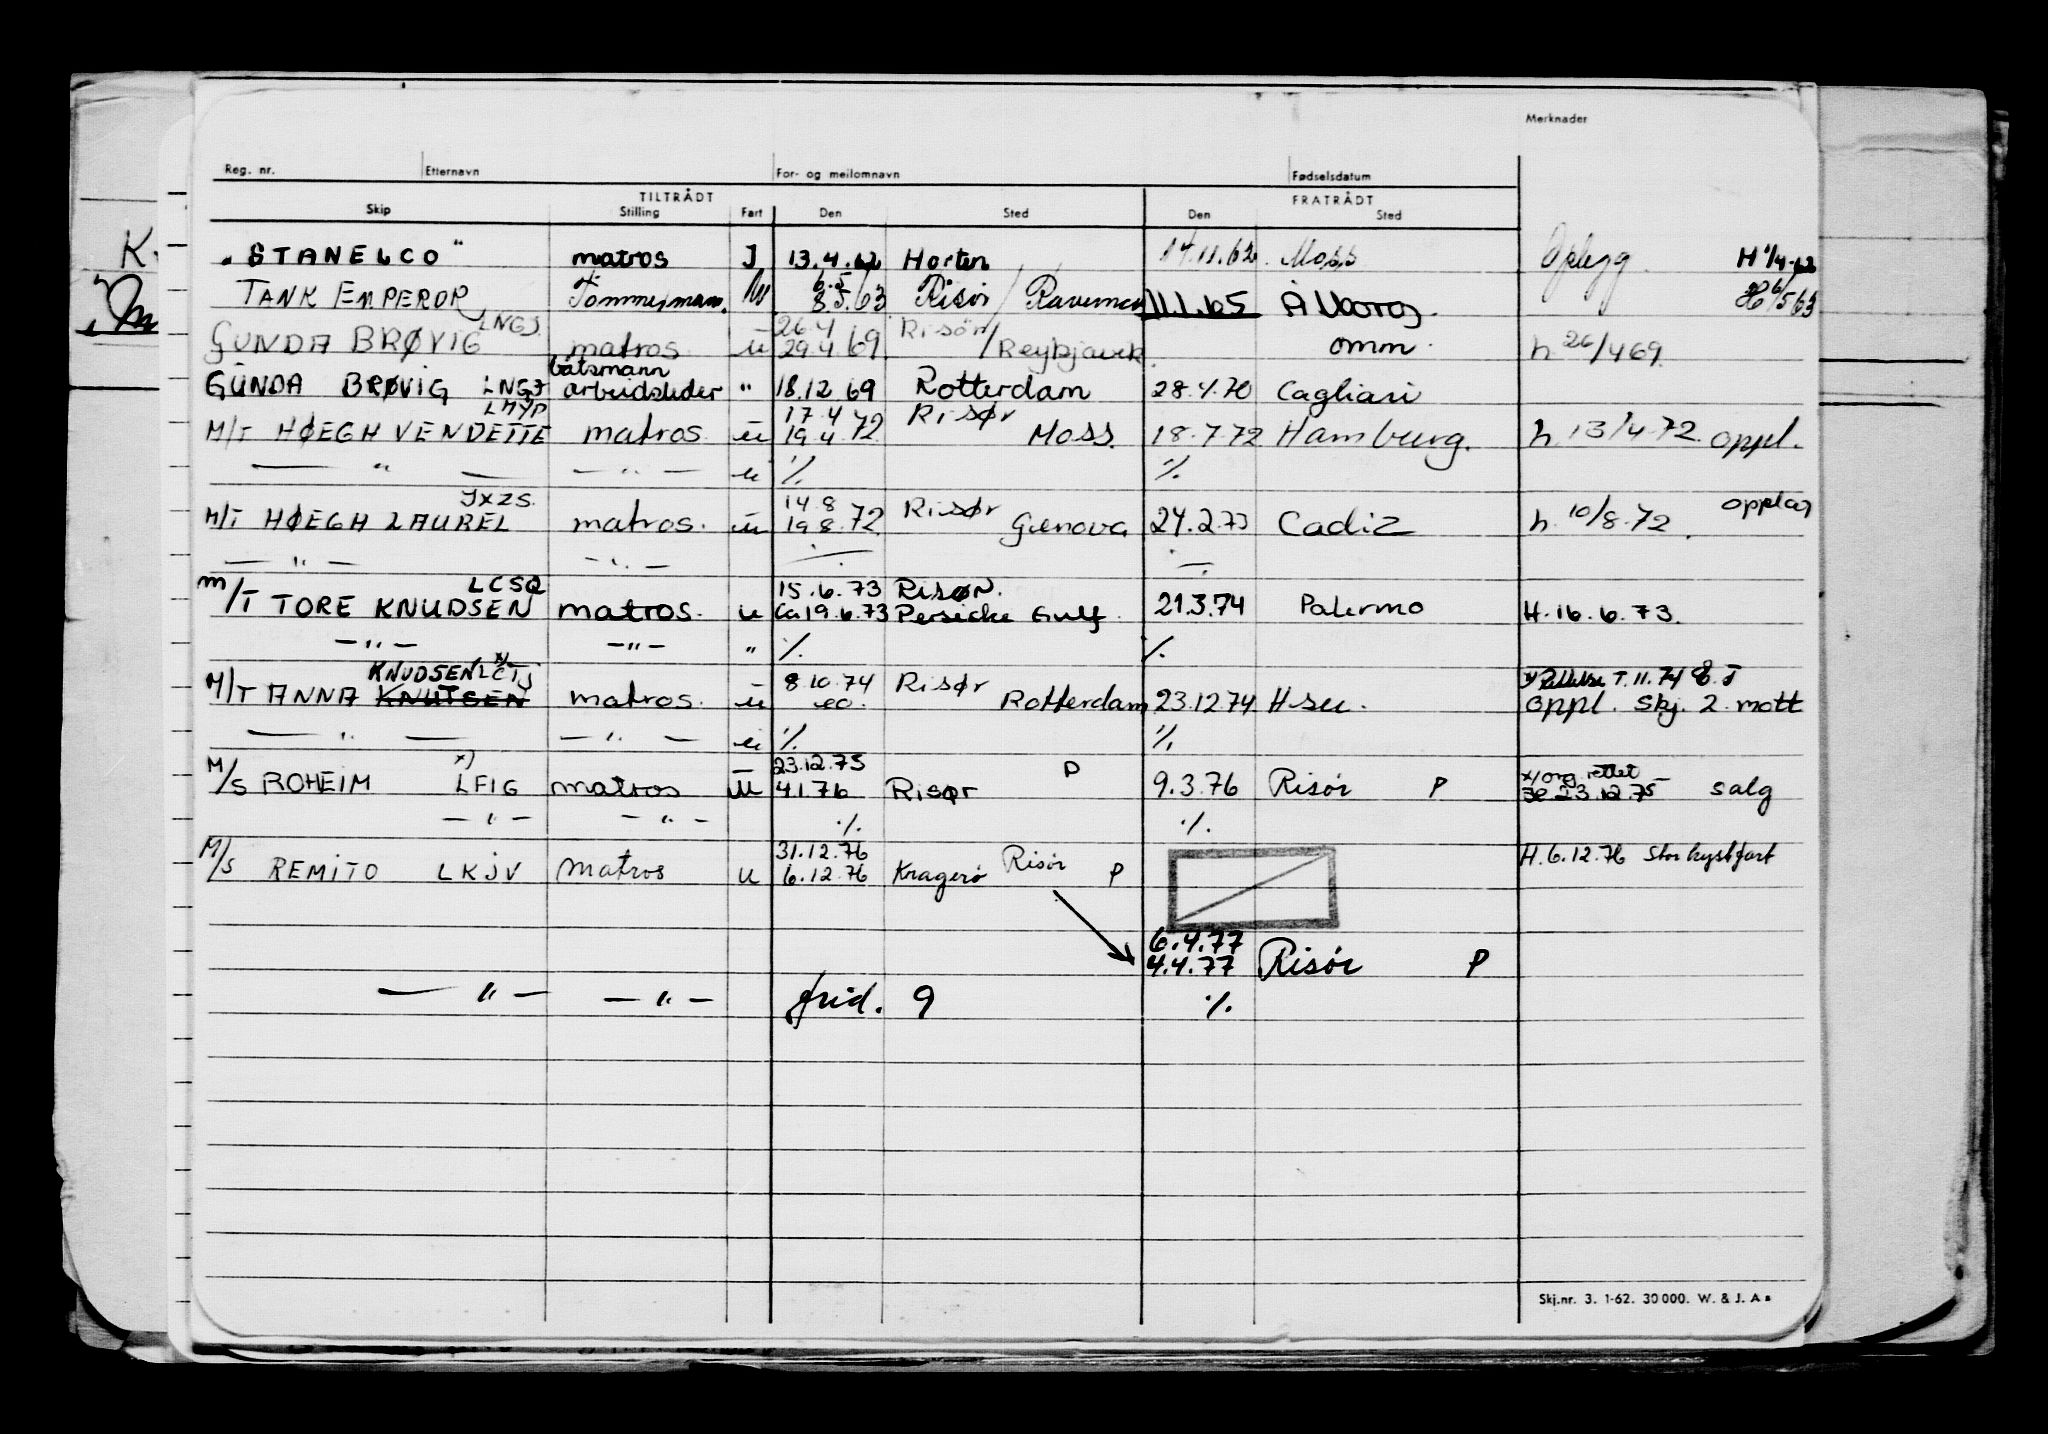 Merknader
Reg. nr. Etternavn For- og mellomnavn Fødselsdatum
TILTRÅDT FRATRÅDT
Skip Stilling Fart Den Sted Den Sted
K.
"STANELCO" matros J 13.4.62 Horten 14.11.62 Moss Opplegg H 1/4-62
TANK EMPEROR Tømmermann. 6.5 8.5.63 Risør / 11.1.65 H 6/5 63
GUNDA BRØVIG LNGJ. matros u 26.4 29.4.69 Risør / Reykjavik omm. h 26/4 69
GUNDA BRØVIG LNGJ båtsmann arbeidsleder " 18.12 69 Rotterdam 28.4.70 Cagliari
M/T HØEGH VENDETTE LHYP matros u 17.4 19.4.72 Risør Moss. 18.7.72 Hamburg. h. 13/4-72 oppl.
— " — — " — u ./. ./.
M/T HØEGH LAUREL JXZS. matros. u 14.8 19.8.72 Risør Genova 24.2.73 Cadiz h. 10/8.72. opplag
— " — — " — — —
M/T TORE KNUDSEN LCSQ matros. u 15.6.73 Risør. ca 19.6.73 Persiske Gulf. 21.3.74 Palermo H. 16.6.73.
— " — — " — " ./. ./.
M/T ANNA KNUTSEN KNUDSEN x) LCTJ matros. u 8.10.74 eo. Risør Rotterdam 23.12.74 H-su. x) Rettelse T. 11.74 oppl. Skj. 2. mott
— " — — " — u ./. ./.
M/S ROHEIM x) LFIG matros u 23.12.75 4.1.76 Risør P 9.3.76 Risør P x) org. rettet 23.12.75 salg
— " — — " — ./. ./.
M/S REMITO LKJV Matros u 31.12.76 6.12.76 Kragerø Risør P H. 6.12.76 Stor kystfart
6.4.77
4.4.77 Risør P
— " — — " — frid. 9 ./.
Skj.nr. 3. 1-62. 30 000. W. & J. A s